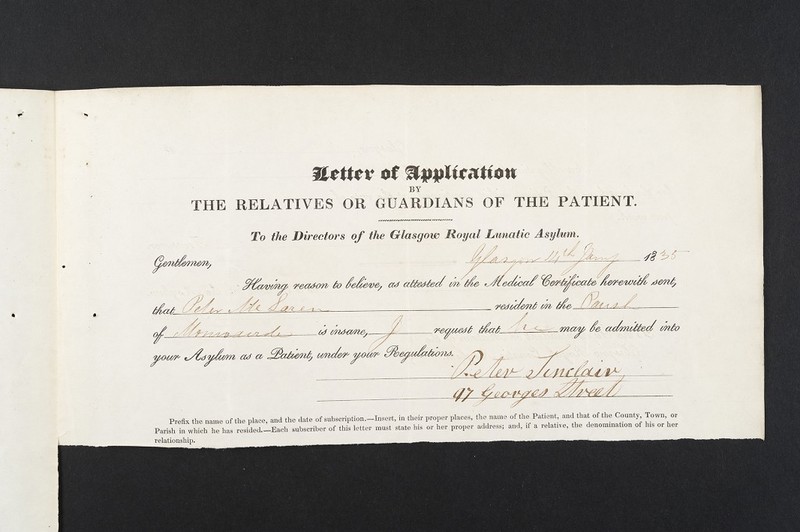 Letter of Application
BY
THE RELATIVES OR GUARDIANS OF THE PATIENT.
To the Directors of the Glasgow Royal Lunatic Asylum.
Glasgow 14th Jany 1835
Gentlemen,
Having reason to believe, as attested in the Medical Certificate herewith sent,
that Peter McLaren resident in the Parish
of Monivaird is insane, I request that he may be admitted into
your Asylum as a Patient, under your Regulations.
Peter Sinclair
97 Georges Street
Prefix the name of the place, and the date of subscription.—Insert, in their proper places, the name of the Patient, and that of the County, Town, or
Parish in which he has resided.—Each subscriber of this letter must state his or her proper address; and, if a relative, the denomination of his or her
relationship.